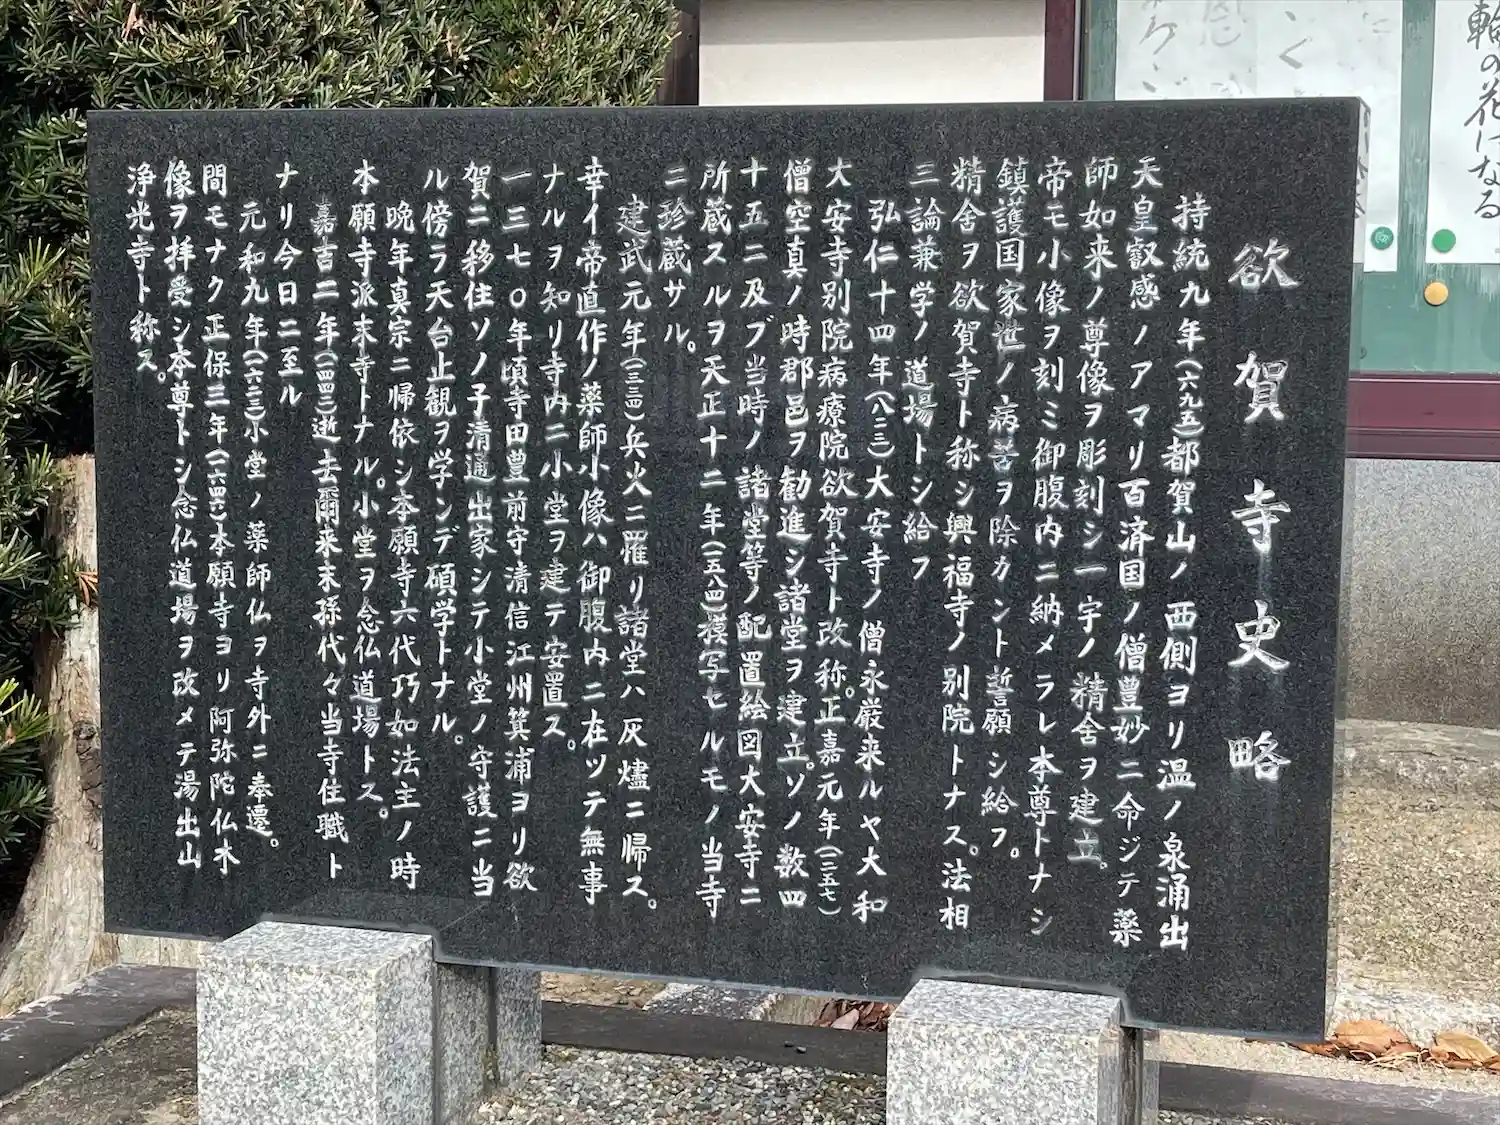 欲賀寺史略
持統九年(六九五)都賀山ノ西側ヨリ温ノ泉涌出
天皇叡感ノアマリ百済国ノ僧豊妙ニ命ジテ薬
師如来ノ尊像ヲ彫刻シ一宇ノ精舎ヲ建立。
帝モ小像ヲ刻ミ御腹内ニ納メラレ本尊トナシ
鎮護国家世ノ病苦ヲ除カント誓願シ給フ。
精舎ヲ欲賀寺ト称シ興福寺ノ別院トナス。法相
三論兼学ノ道場トシ給フ
弘仁十四年(八二三)大安寺ノ僧永厳来ルヤ大和
大安寺別院病療院欲賀寺ト改称。正嘉元年(一二五七)
僧空真ノ時郡邑ヲ勧進シ諸堂ヲ建立。ソノ数四
十五ニ及ブ当時ノ諸堂等ノ配置絵図大安寺ニ
所蔵スルヲ天正十二年(一五八四)模写セルモノ当寺
ニ珍蔵サル。
建武元年(一三三四)兵火ニ罹リ諸堂ハ灰燼ニ帰ス。
幸イ帝直作ノ薬師小像ハ御腹内ニ在ツテ無事
ナルヲ知リ寺内ニ小堂ヲ建テ安置ス。
一三七〇年頃寺田豊前守清信江州箕浦ヨリ欲
賀ニ移住ソノ子清通出家シテ小堂ノ守護ニ当
ル傍ラ天台止観ヲ学ンデ碩学トナル。
晩年真宗ニ帰依シ本願寺六代巧如法主ノ時
本願寺派末寺トナル。小堂ヲ念仏道場トス。
嘉吉二年(一四四二)逝去爾来末孫代々当寺住職ト
ナリ今日ニ至ル
元和九年(一六二三)小堂ノ薬師仏ヲ寺外ニ奉遷。
間モナク正保三年(一六四六)本願寺ヨリ阿弥陀仏木
像ヲ拝受シ本尊トシ念仏道場ヲ改メテ湯出山
浄光寺ト称ス。
輪の花になる